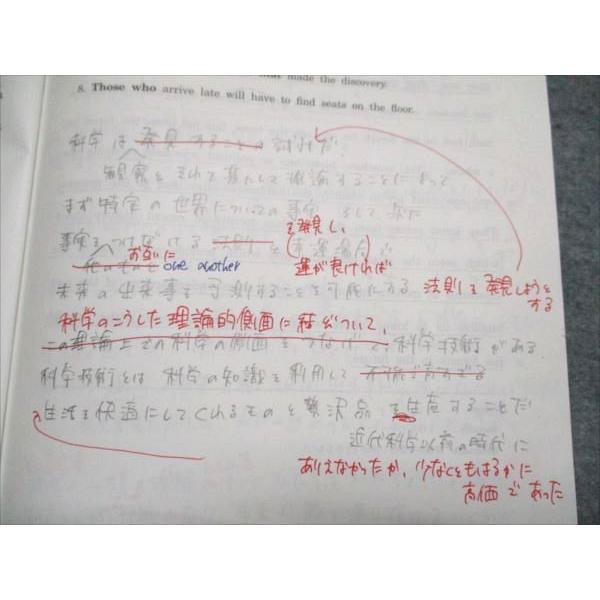 made the discovery.
8. Those who arrive late will have to find seats on the floor.
科学は発見することの試みだ.
観察をそれて基として推論することによって
まず特定の世界についての事実、そして次に
を発見し,
事実をつなげる法則を 幸運な場合
お互いに
その他のもの one another 運が良ければ
未来の出来事を予測することを可能にする 法則を発見しようと
する
科学のこうした理論的側面に結びついて,
この理論上での科学の側面をつなげて 科学技術がある.
科学技術とは 科学の知識を利用して 不可能であった
生活を快適にしてくれるものと贅沢品を生産することだ
近代科学以前の時代に
ありえなかったか、少なくともはるかに
高価であった